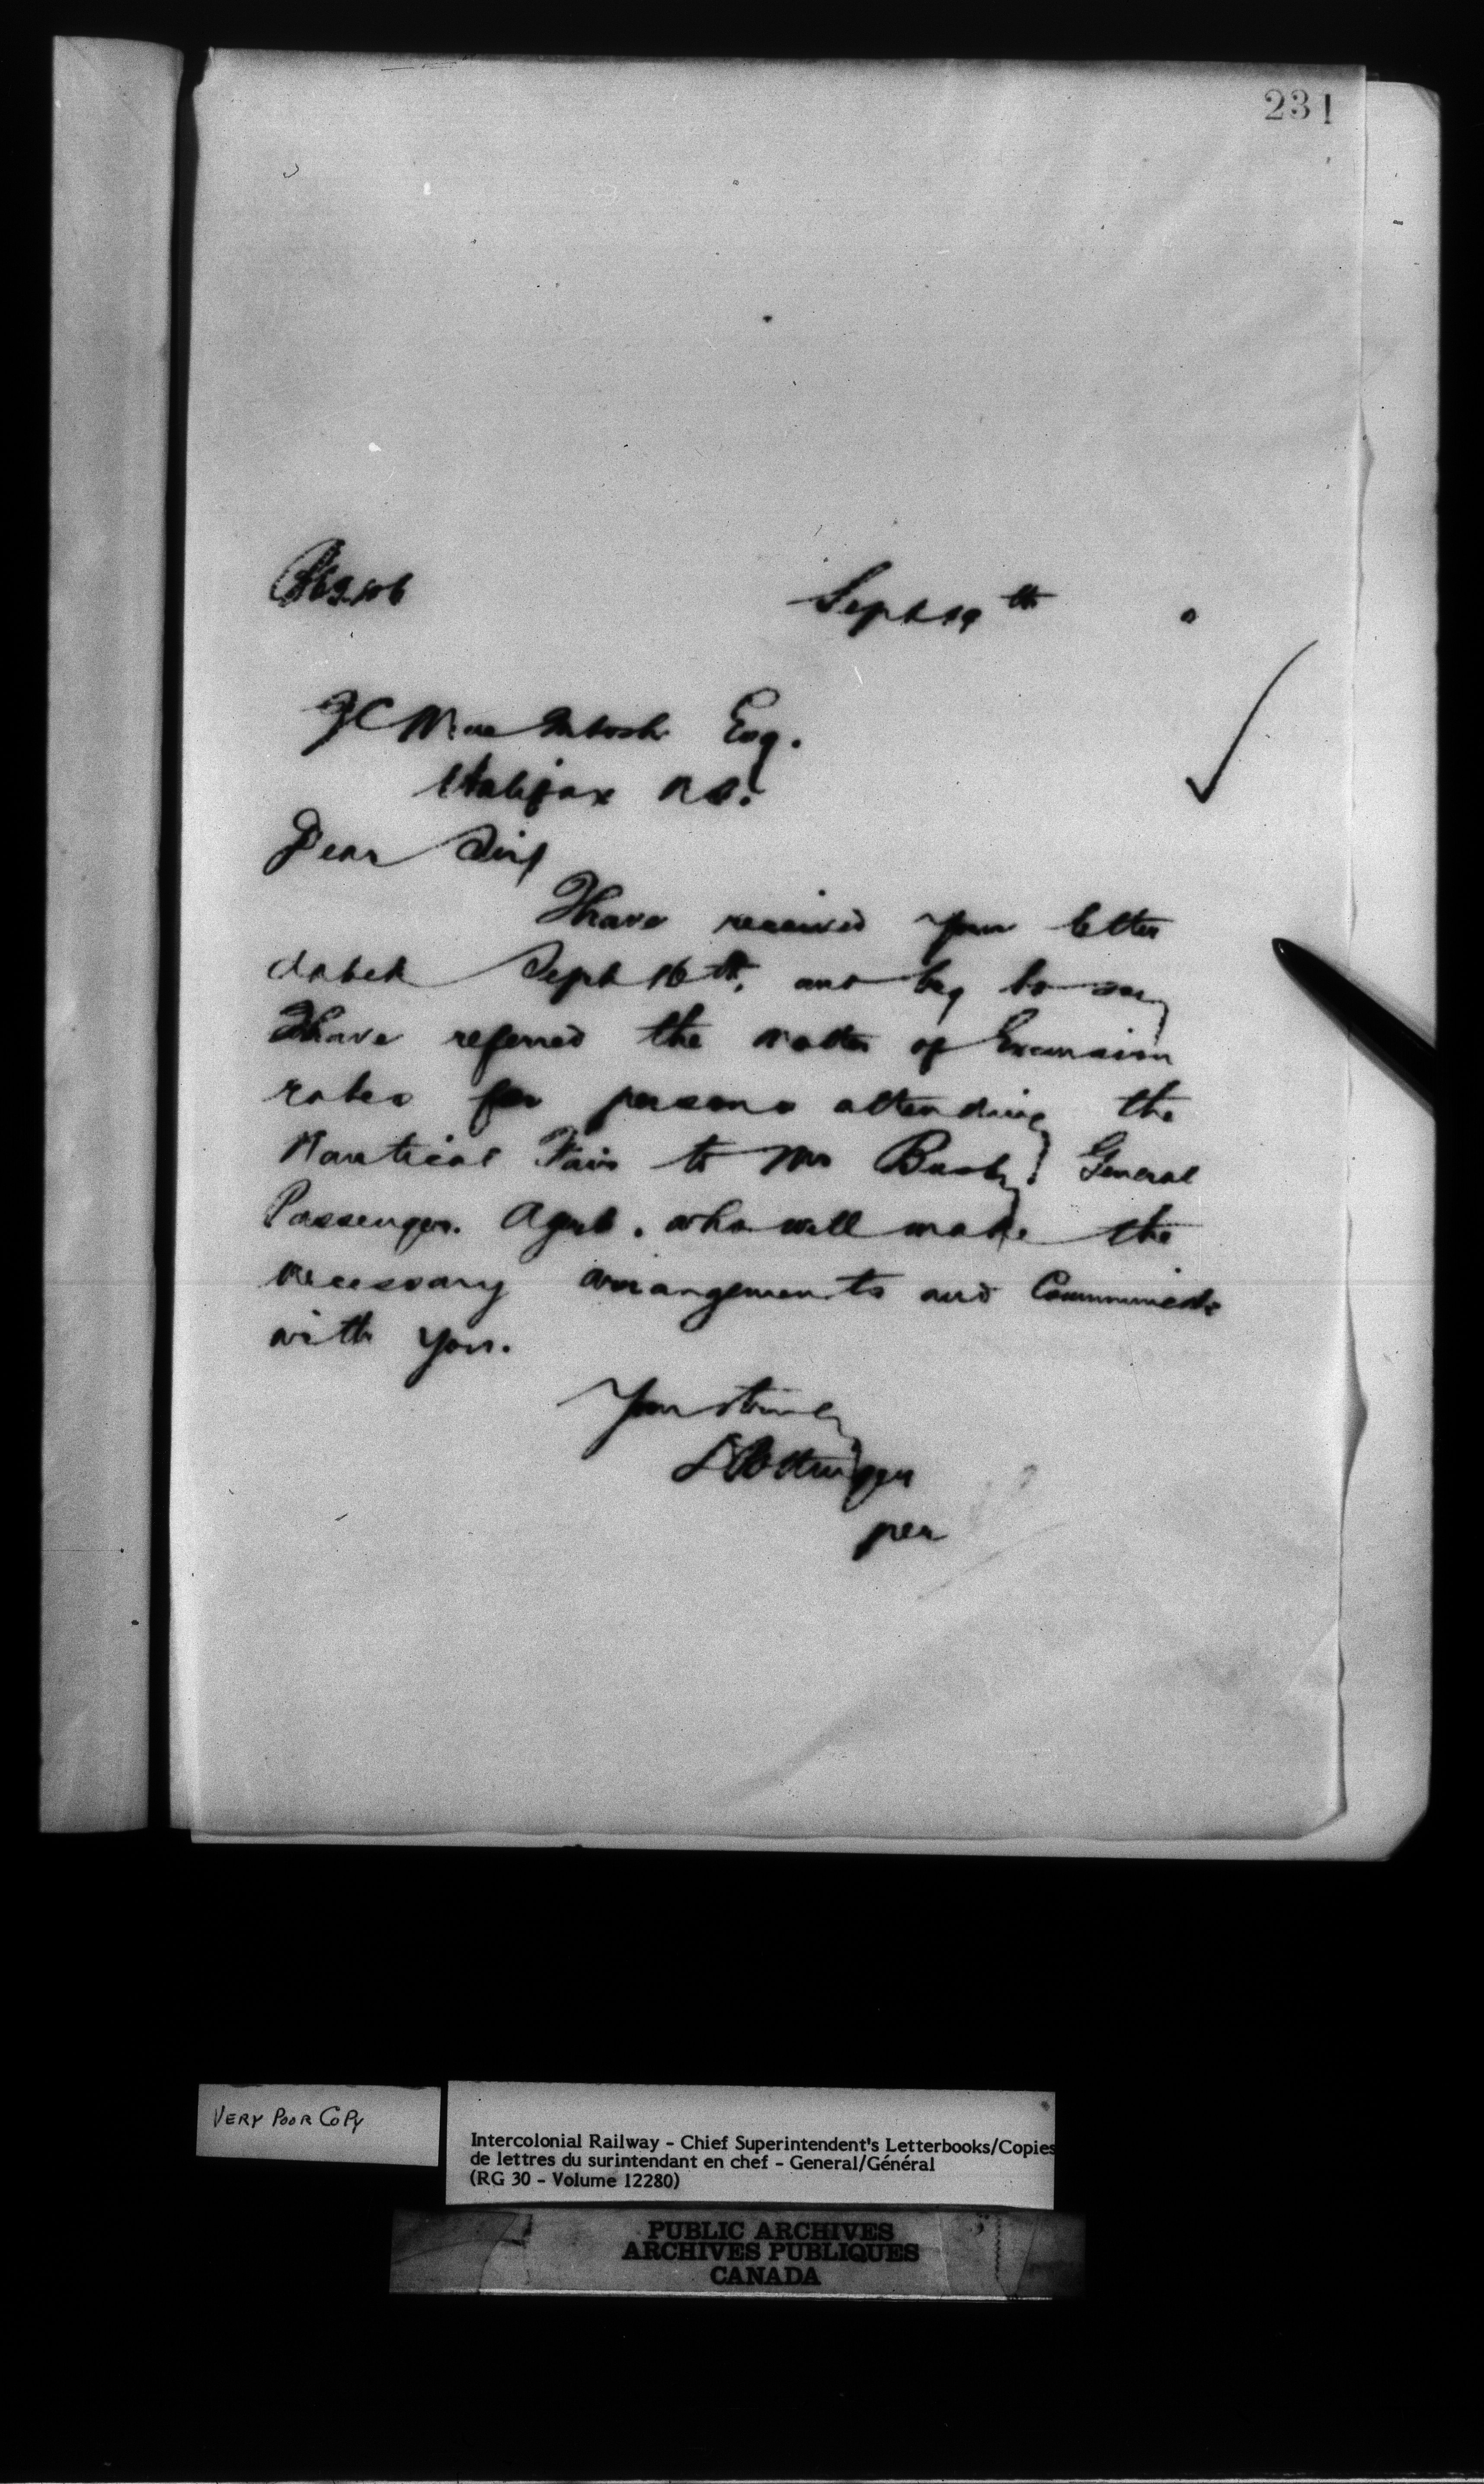 231
Sept 19th
J C MacIntosh Esq.
Halifax N.S.
Dear Sir,
I have received your letter
dated Sept 16th, and beg to say
I have referred the matter of Excursion
rates for persons attending the
Nautical Fair to Mr Busby, General
Passenger Agent, who will make the
necessary arrangements and Communicate
with you.
Yours truly
D Pottinger
per
VERY POOR COPY
Intercolonial Railway - Chief Superintendent's Letterbooks/Copies
de lettres du surintendant en chef - General/Général
(RG 30 - Volume 12280)
PUBLIC ARCHIVES
ARCHIVES PUBLIQUES
CANADA